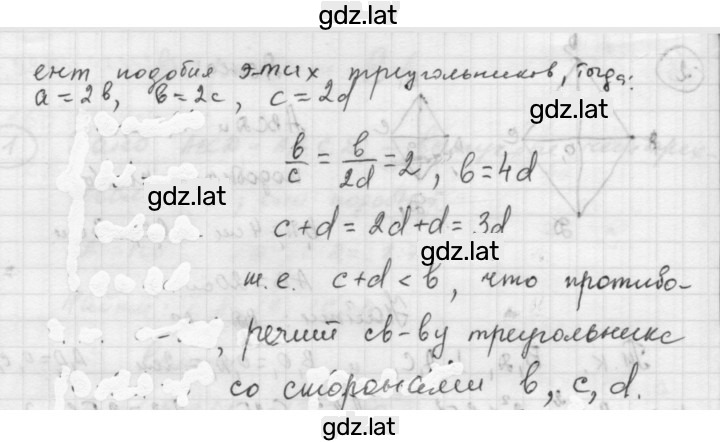 gdz.lat
ент подобия этих треугольников, тогда:
a = 2b, b = 2c, c = 2d
gdz.lat
b/c = b/2d = 2, b = 4d
gdz.lat
c + d = 2d + d = 3d
gdz.lat
т.е. c + d < b, что противо-
речит св-ву треугольника
со сторонами b, c, d.
gdz.lat